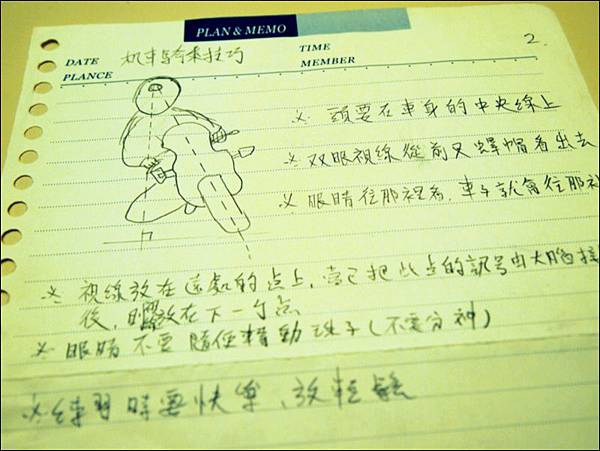 PLAN & MEMO
DATE 机車騎乘技巧 TIME 2.
PLANCE MEMBER
※ 頭要在車身的中央線上
※ 双眼視線從前叉 帽看出去
※ 眼睛往那裡看,車子就會往那
※ 視線放在遠處的点上,當已把此点的訊号由大腦接
後,放在下一个点
※ 眼睛不要隨便精動珠子(不要分神)
※ 練習時要快樂、放輕鬆